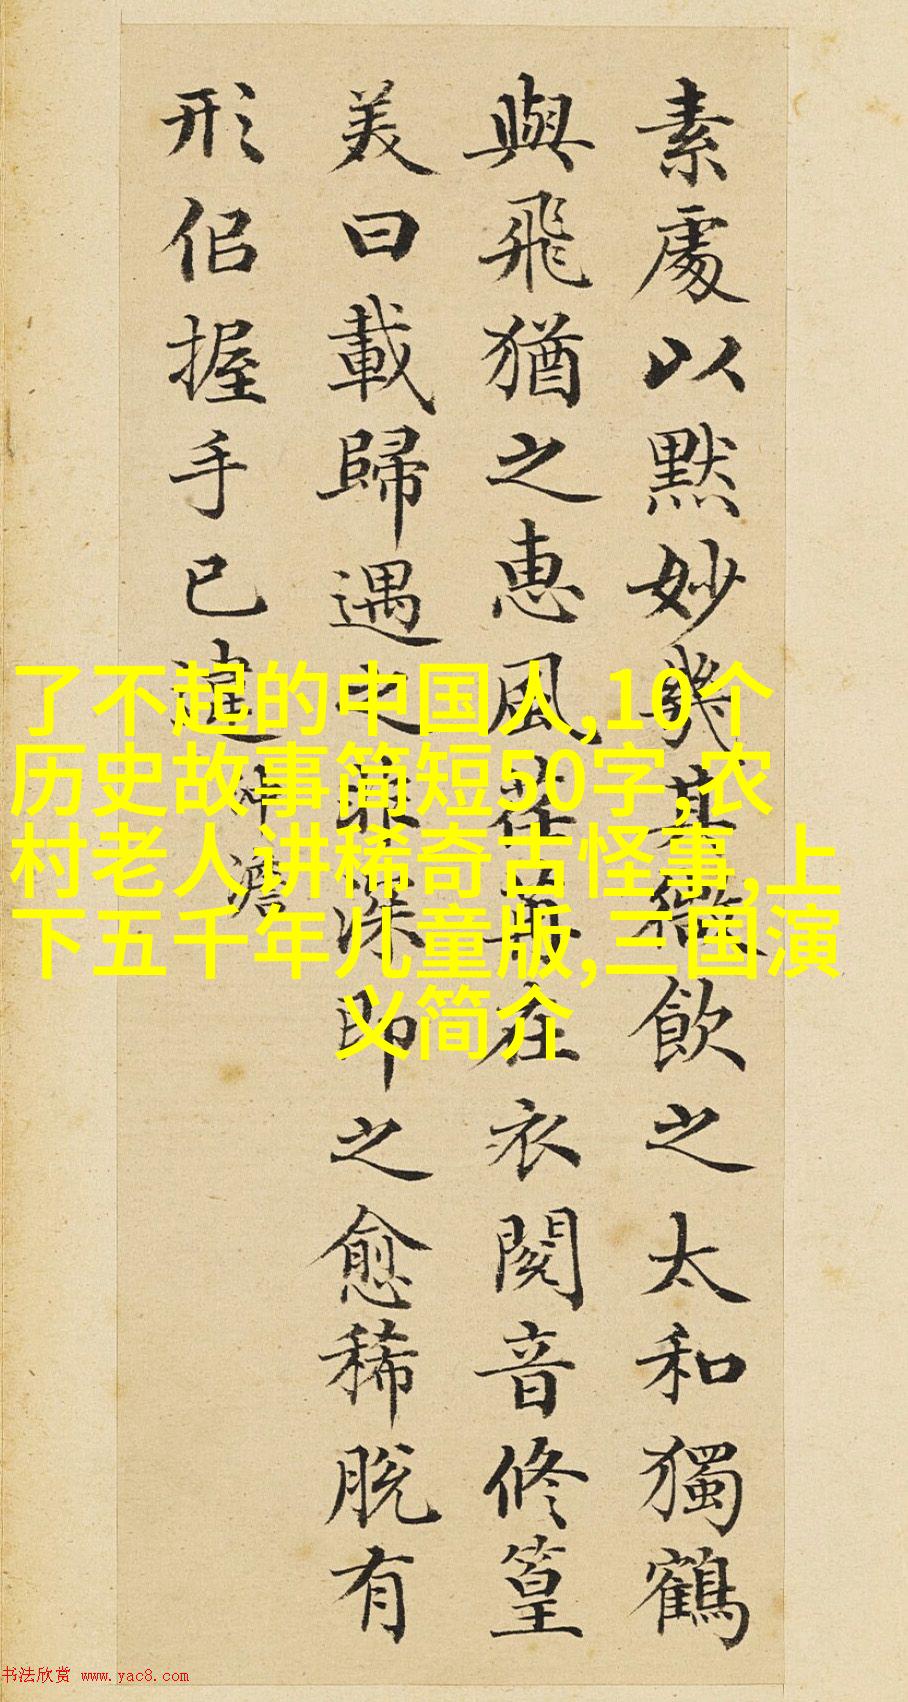 素處以默妙幾其微飲之太和獨鶴
與飛猶之惠風荏苒在衣閱音修篁
美曰載歸遇之匪深即之愈稀脫有
形佀握手已違
沖澹
了不起的中国人,10个
历史故事简短50字,农
村老人讲稀奇古怪事,上
下五千年儿童版,三国演
义简介
书法欣赏 www.yac8.com